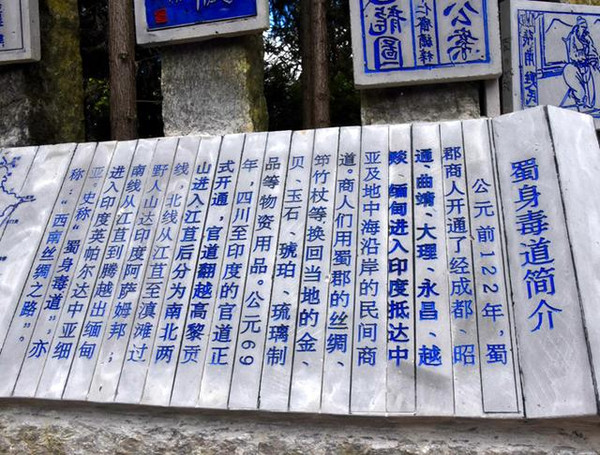 蜀身毒道简介
公元前122年,蜀
郡商人开通了经成都、昭
通、曲靖、大理、永昌、越
赕、缅甸进入印度抵达中
亚及地中海沿岸的民间商
道。商人们用蜀郡的丝绸、
筇竹杖等换回当地的金、
贝、玉石、琥珀、琉璃制
品等物资用品。公元69
年,四川至印度的官道正
式开通,官道翻越高黎贡
山进入江苴后分为南北两
线,北线从江苴至滇滩过
野人山达印度阿萨姆邦;
南线从江苴到腾越出缅甸
进入印度英帕尔达中亚细
亚。史称“蜀身毒道”,亦
称:“西南丝绸之路”。
公案
龙图